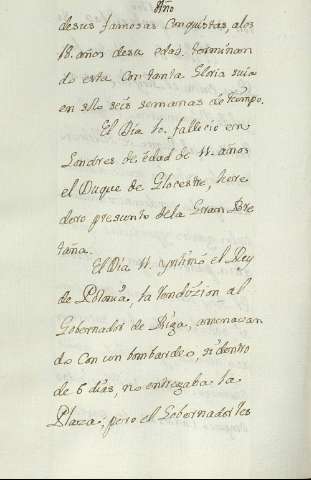 Año
desus famosas Conquistas, alos
18. años desu edad, terminan
do esta Con tanta Gloria suia
en sólo seis semanas de tiempo.
El Dia 10. fallecio en
Londres de edad de 11. años
el Duque de Glocestre, here
dero presunto dela Gran Bre
taña.
El Dia 11. yntimó el Rey
de Polonia, la Rendizion al
Gobernador de Riga, amenazan
do Con un bombardeo, si dentro
de 6 dias, no entregaba la
Plaza; pero el Gobernador les